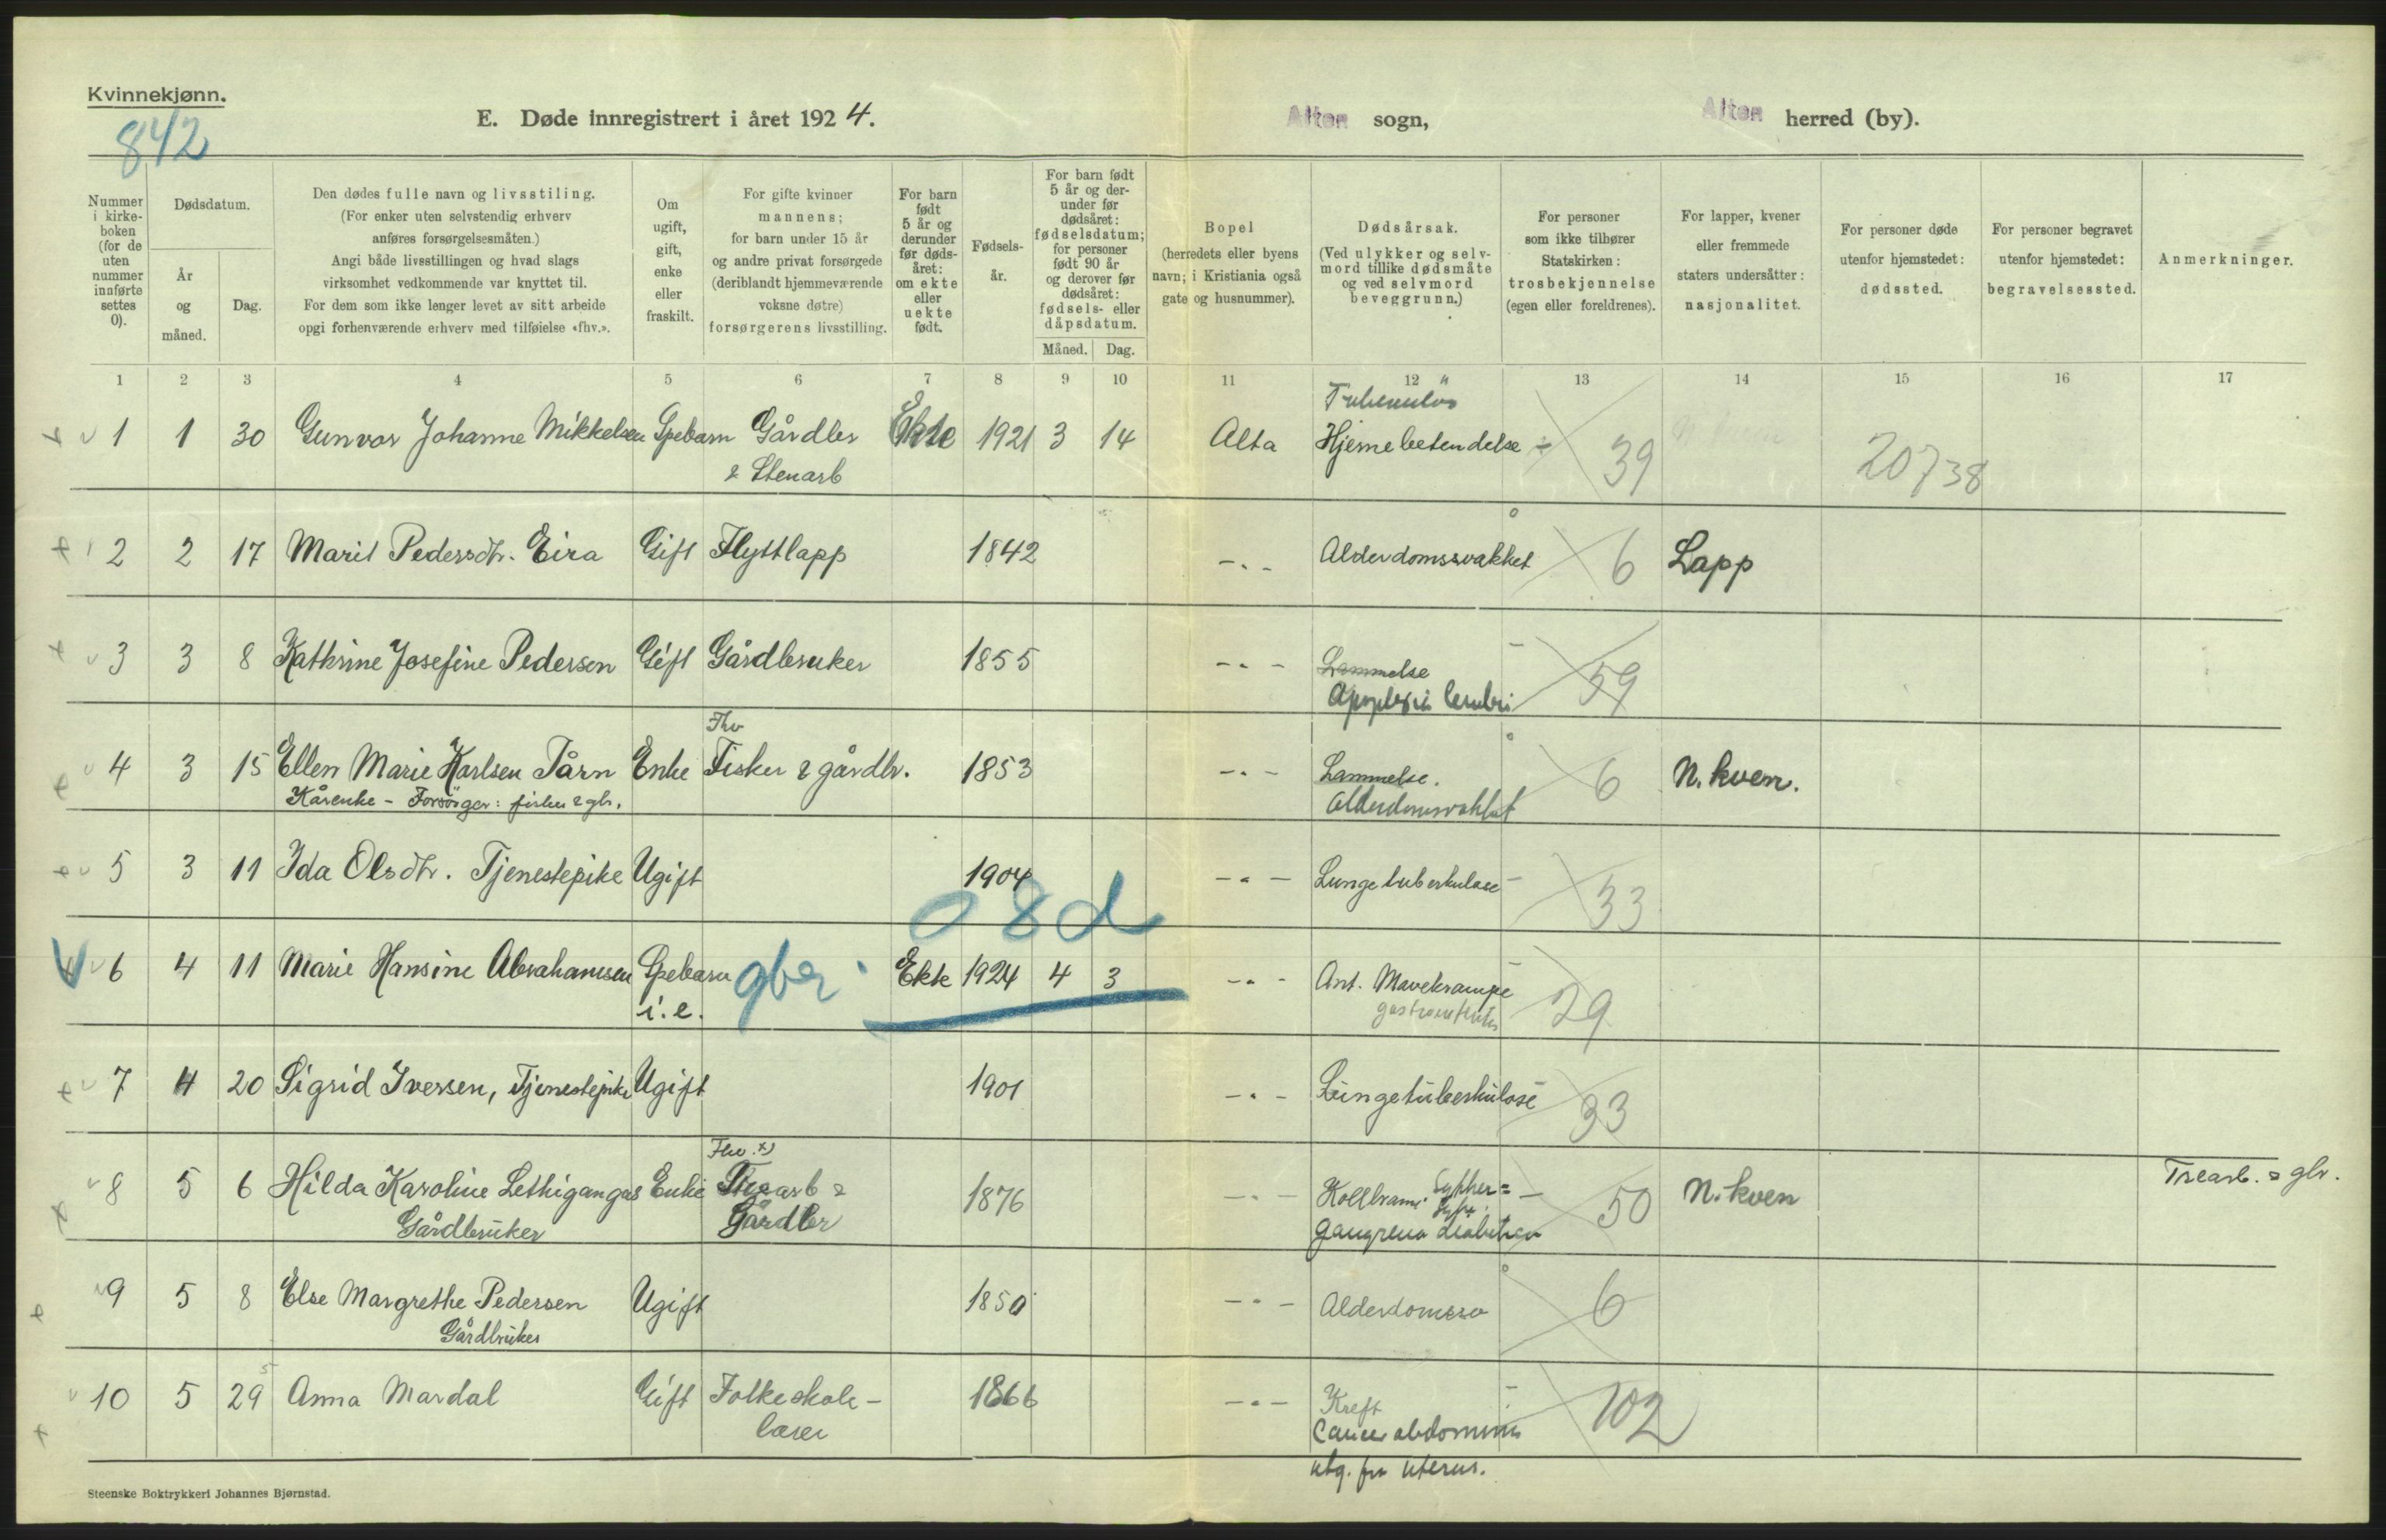 Kvinnekjønn.
842
E. Døde innregistrert i året 1924.
Alten sogn,
Alten herred (by).
Nummer i kirke-boken (for de uten nummer innførte settes 0).
Dødsdatum.
År og måned.
Dag.
Den dødes fulle navn og livsstiling.
(For enker uten selvstendig erhverv
anføres forsørgelsesmåten.)
Angi både livsstillingen og hvad slags
virksomhet vedkommende var knyttet til.
For dem som ikke lenger levet av sitt arbeide
opgi forhenværende erhverv med tilføielse «fhv.».
Om ugift, gift, enke eller fraskilt.
For gifte kvinner
mannens;
for barn under 15 år
og andre privat forsørgede
(deriblandt hjemmeværende
voksne døtre)
forsørgerens livsstilling.
For barn født 5 år og derunder før døds-året: om ekte eller uekte født.
Fødsels-år.
For barn født 5 år og der-under før dødsåret: fødselsdatum; for personer født 90 år og derover før dødsåret: fødsels- eller dåpsdatum.
Måned. Dag.
Bopel
(herredets eller byens
navn; i Kristiania også
gate og husnummer).
Dødsårsak.
(Ved ulykker og selv-
mord tillike dødsmåte
og ved selvmord
beveggrunn.)
For personer
som ikke tilhører
Statskirken:
trosbekjennelse
(egen eller foreldrenes).
For lapper, kvener
eller fremmede
staters undersåtter:
nasjonalitet.
For personer døde
utenfor hjemstedet:
dødssted.
For personer begravet
utenfor hjemstedet:
begravelsessted.
Anmerkninger.
1 2 3 4 5 6 7 8 9 10 11 12 13 14 15 16 17
Tuberkuløs
1 1 30 Gunvor Johanne Mikkelsen Spebarn Gårdbr Ekte 1921 3 14 Alta Hjernebetendelse 39 20738
& Stenarb
2 2 17 Marit Pedersdtr. Eira Gift Flyttlapp 1842 -"- Alderdomssvakhet 6 Lapp
3 3 8 Kathrine Josefine Pedersen Gift Gårdbruker 1855 -"- Lammelse 59
Apoplexia cerebri
Fhv
4 3 15 Ellen Marie Karlsen Tårn Enke Fisker & gårdbr. 1853 -"- Lammelse. 6 N. kven.
Kårenke - Forsörger: fisker & gbr. Alderdomsvakhet
5 3 11 Ida Olsdtr. Tjenestepike Ugift 1904 -"- Lungetuberkulose 33
08d
6 4 11 Marie Hansine Abrahamsen Spebarn gbr Ekte 1924 4 3 -"- Ant. Mavekrampe 29
i.e.
7 4 20 Sigrid Iversen, Tjenestepike Ugift 1901 -"- Lungetuberkulose 33
Fhv. x)
8 5 6 Hilda Karoline Lethigangas Enke Trearb & 1876 -"- Koldbrann. Sukker= 50 N. kven Trearb. & gbr.
Gårdbruker Gårdbr syke. gangrena diabetica
9 5 8 Else Margrethe Pedersen Ugift 1850 -"- Alderdomssv 6
Gårdbruker
10 5 29 Anna Mardal Gift Folkeskole- 1866 -"- Kreft 102
lærer Cancer abdominis
utg. fra uterus.
Steenske Boktrykkeri Johannes Bjørnstad.